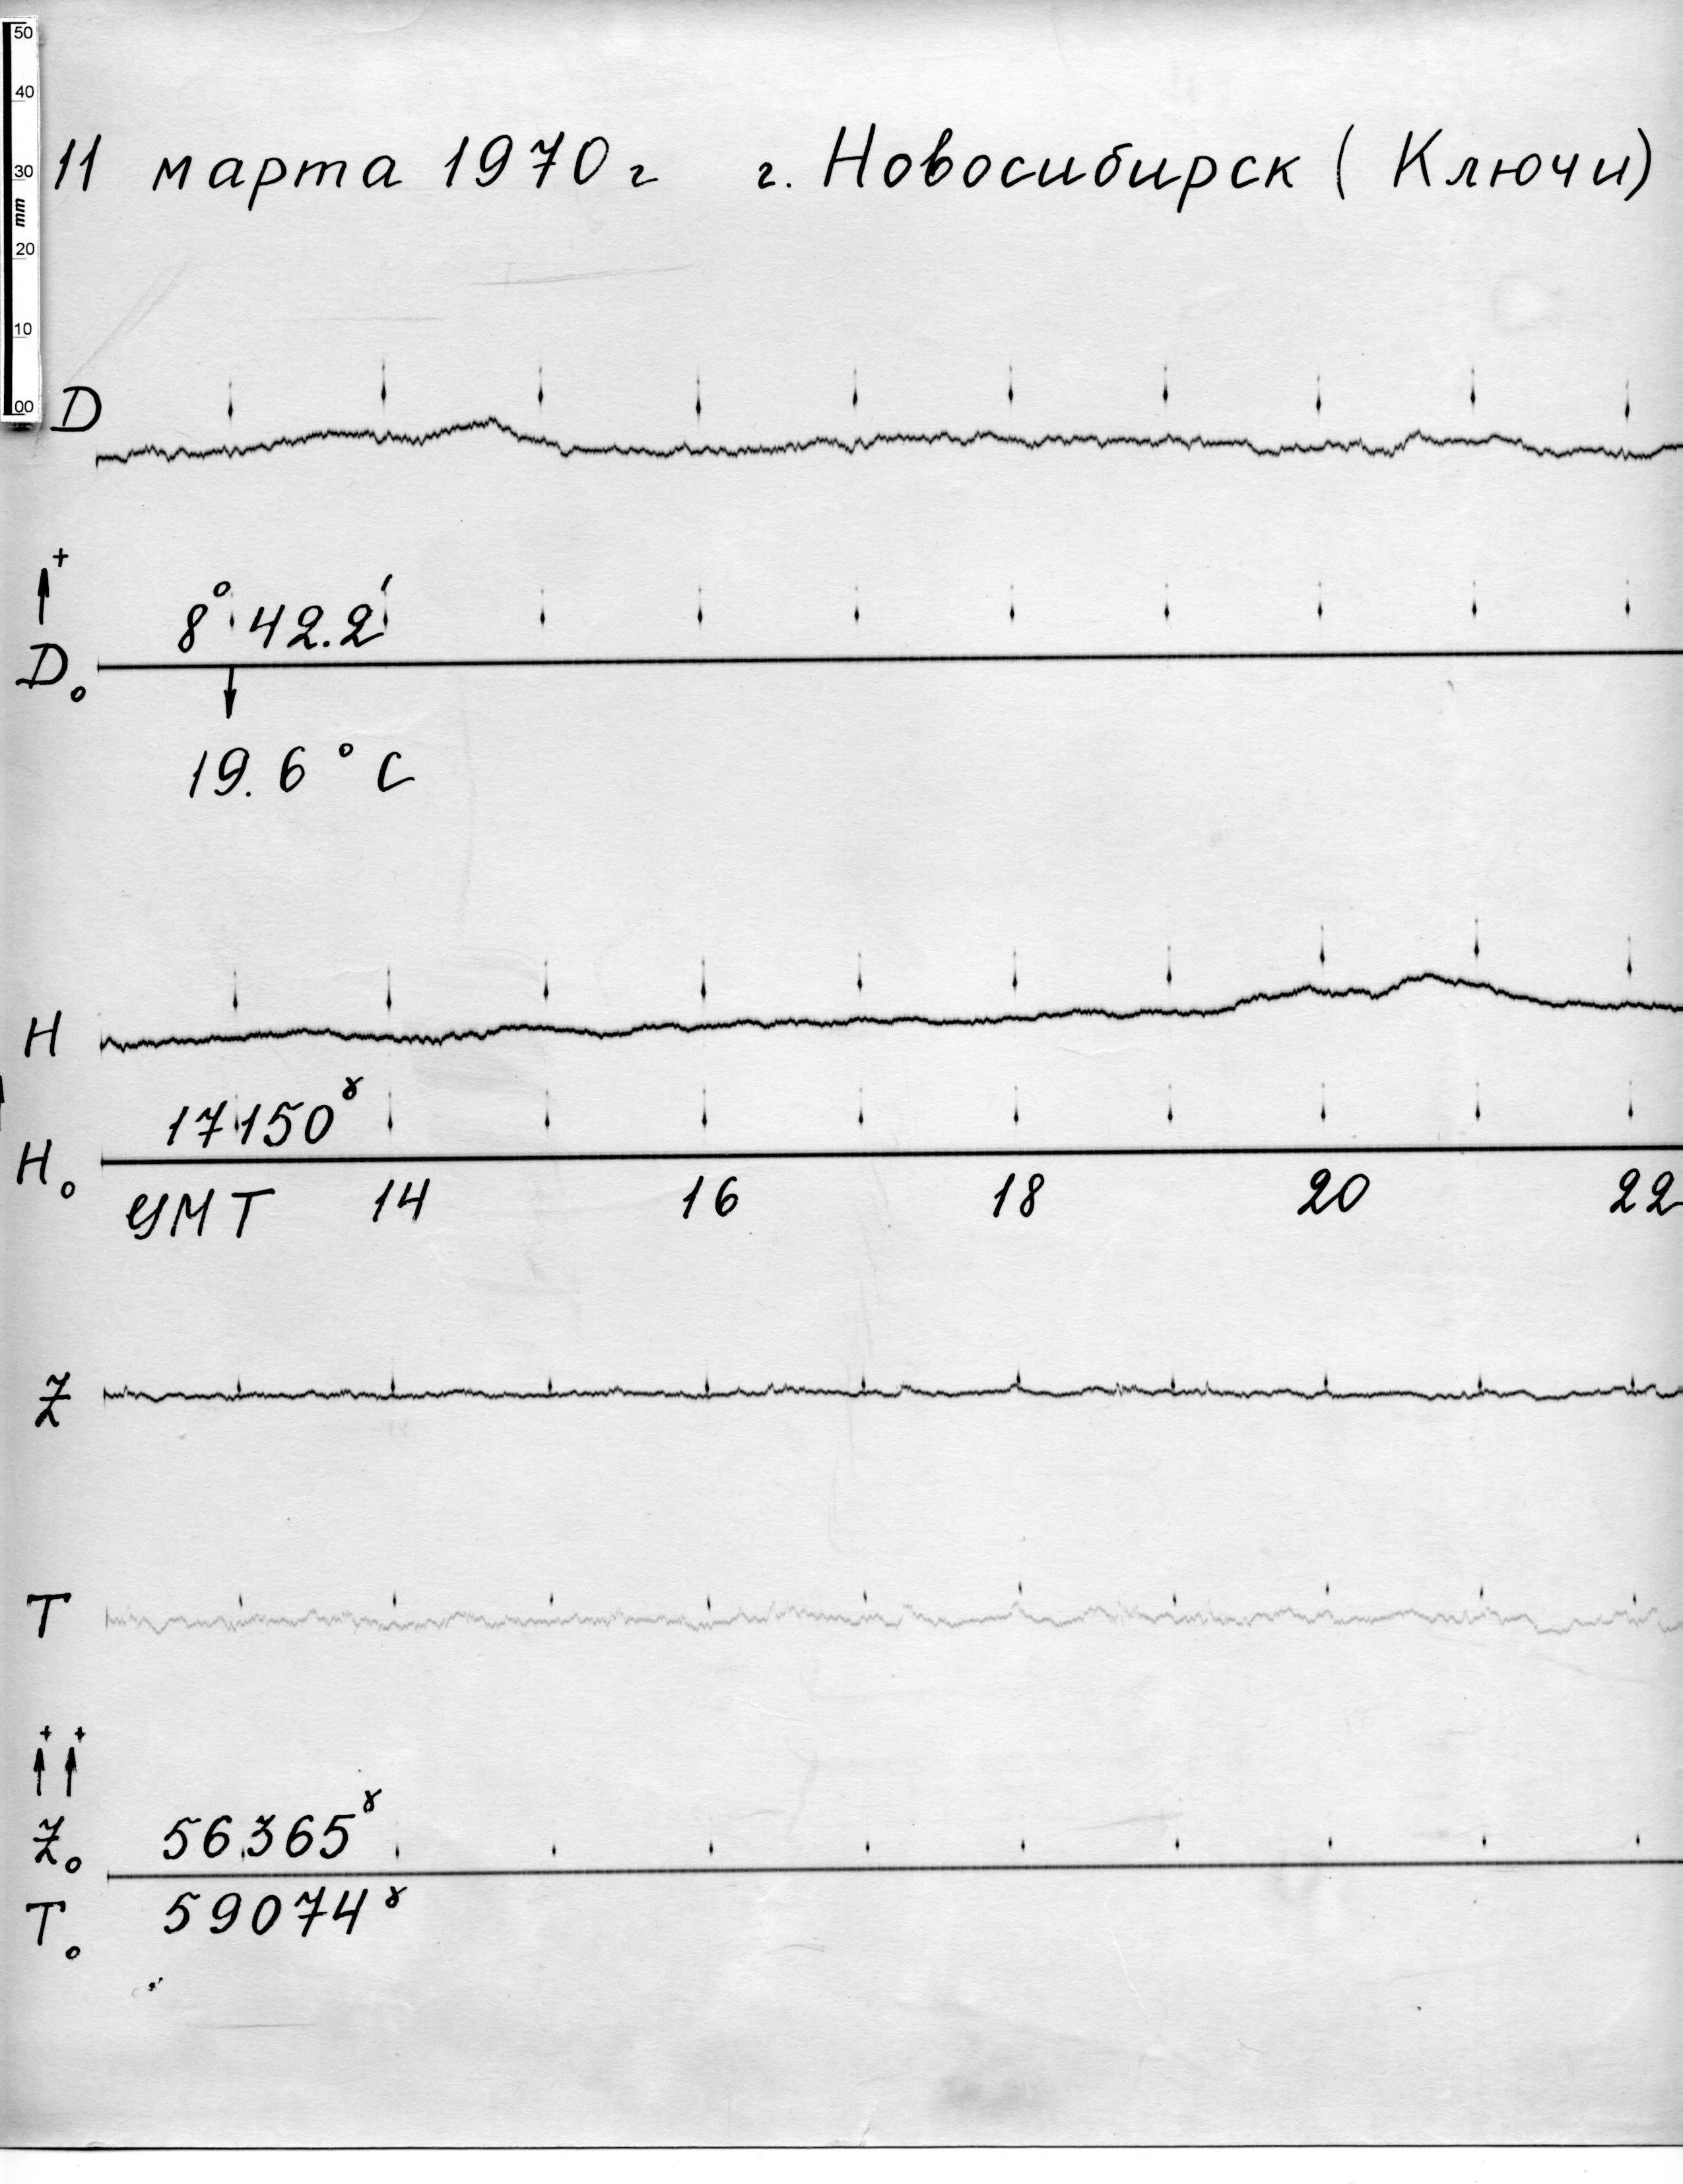 50
40
30
mm
20
10
00
11 марта 1970 г г. Новосибирск (Ключи)
D
+
8° 42.2'
D₀
19.6° C
H
17150ˠ
H₀
УМТ 14 16 18 20 22
Z
T
+ +
Z₀ 56365ˠ
T₀ 59074ˠ